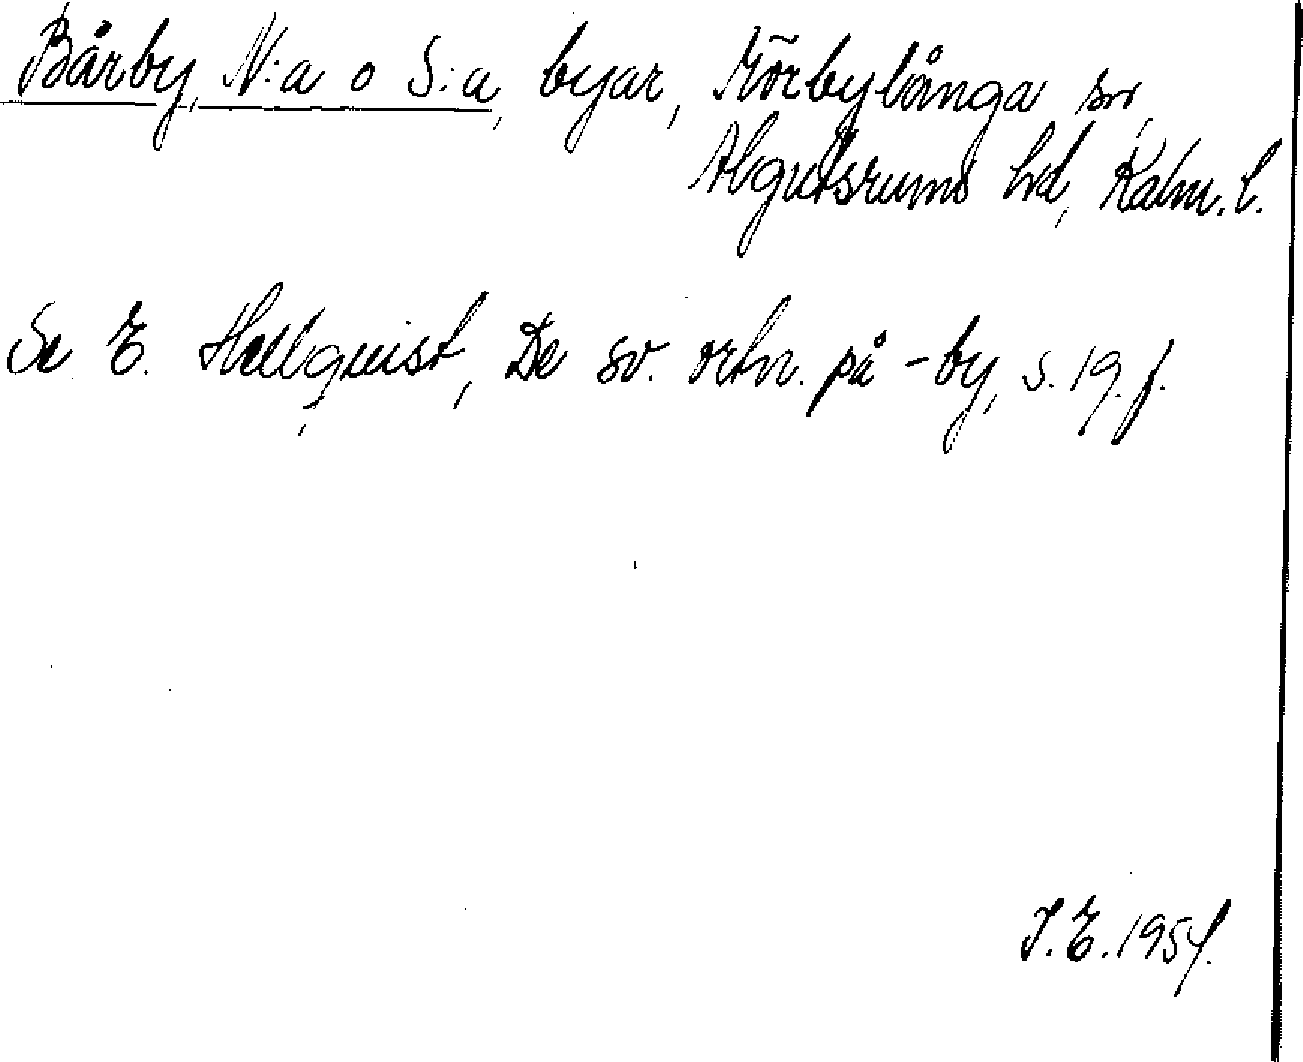 Bårby, N:a o S:a, byar, Mörbylånga sn,
Algutsrums hd, Kalm. l.
Se E. Hellquist, De sv. ortn. på -by, s. 19. f.
I. E. 1954.